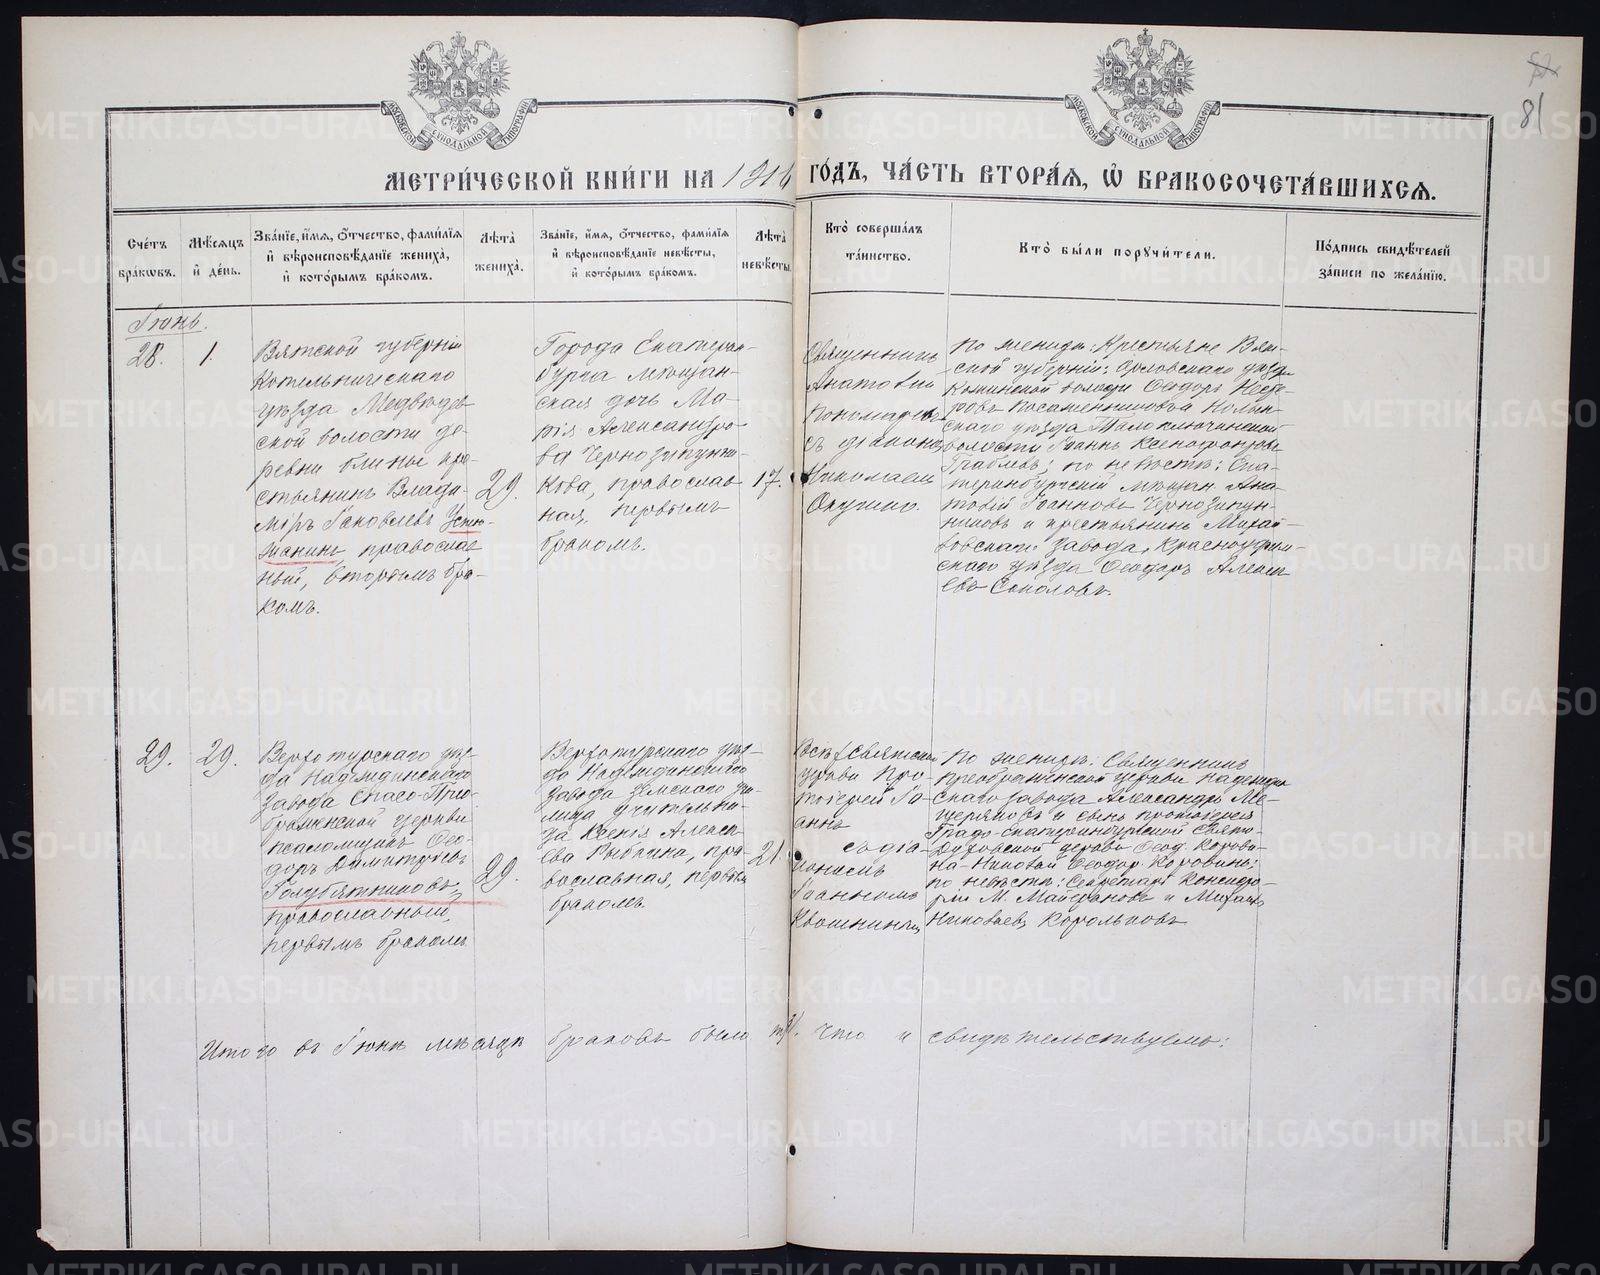 81
МЕТРИ́ЧЕСКОЙ КНИ́ГИ НА 1914 ГО́ДЪ, ЧА́СТЬ ВТОРА́Я, Ѡ҆ БРАКОСОЧЕТА́ВШИХСЯ.
Сче́тъ бра́кѡвъ.
Мѣ́сяцъ и҆ де́нь.
Зва́нїе, и҆́мя, ѻ҆́тчество, фами́лїя и҆ вѣроисповѣ́данїе жениха̀, и҆ кото́рымъ бра́комъ.
Лѣ́та жениха̀.
Зва́нїе, и҆́мя, ѻ҆́тчество, фами́лїя и҆ вѣроисповѣ́данїе невѣ́сты, и҆ кото́рымъ бра́комъ.
Лѣ́та невѣ́сты.
Кто̀ соверша́лъ та́инство.
Кто̀ бы́ли порꙋчи́тели.
По́дпись свидѣ́телей за́писи по жела́нїю.
Іюнь.
28.
1.
Вятской губерніи
Котельническаго
уѣзда Медвѣдев
ской волости де-
ревни Блины кре-
стьянинъ Влади-
міръ Іаковлевъ Устю-
жанинъ православ
ный, вторымъ бра-
комъ.
29.
Города Екатерин-
бурга мѣщан-
ская дочь Ма-
рія Александро-
ва Чернозипунни-
кова, православ
ная, первымъ
бракомъ.
17.
Священникъ
Анатолій
Пономаревъ
съ діакономъ
Николаемъ
По женихѣ: Крестьяне Вят-
ской губерніи: Орловскаго уѣзда
волости Ѳеодоръ Несте-
ровъ и Нолин-
скаго уѣзда
волости Іоаннъ Ксенофонтовъ
по невѣстѣ: Ека-
теринбургскій мѣщан. Ана-
толій Іоанновъ Чернозипун-
никовъ и крестьянинъ Михай-
ловскаго завода, Красноуфим-
скаго уѣзда Ѳеодоръ Алексѣ
евъ Соколовъ.
29.
29.
Верхотурскаго уѣз-
да Надеждинскаго
завода Спасо-Прео-
браженской церкви
псаломщикъ Ѳео-
доръ Димитріевъ
Голубятниковъ,
православный,
первымъ бракомъ
29.
Верхотурскаго уѣз-
да Надеждинскаго
завода земскаго учи-
лища учительни-
ца Ксенія Алексѣ-
ева Рыбкина, пра-
вославная, первымъ
бракомъ.
21.
Всѣхсвятской
церкви Про-
тоіерей Іо-
аннъ
съ діа-
кономъ
Іоанномъ
Квашнинымъ
По женихѣ: Священникъ
Преображенской церкви Надеждин
скаго завода Александръ Ме-
щеряковъ и сынъ протоіерея
Градо-Екатеринбургской Свято-
Духовской церкви Ѳеод. Корови-
на Николай Ѳеодор. Коровинъ;
по невѣстѣ: Секретарь Консисто-
ріи М. Майерановъ и Михаилъ
Николаевъ Корольковъ
Итого въ Іюнѣ мѣсяцѣ браковъ было что и свидѣтельствуемъ: